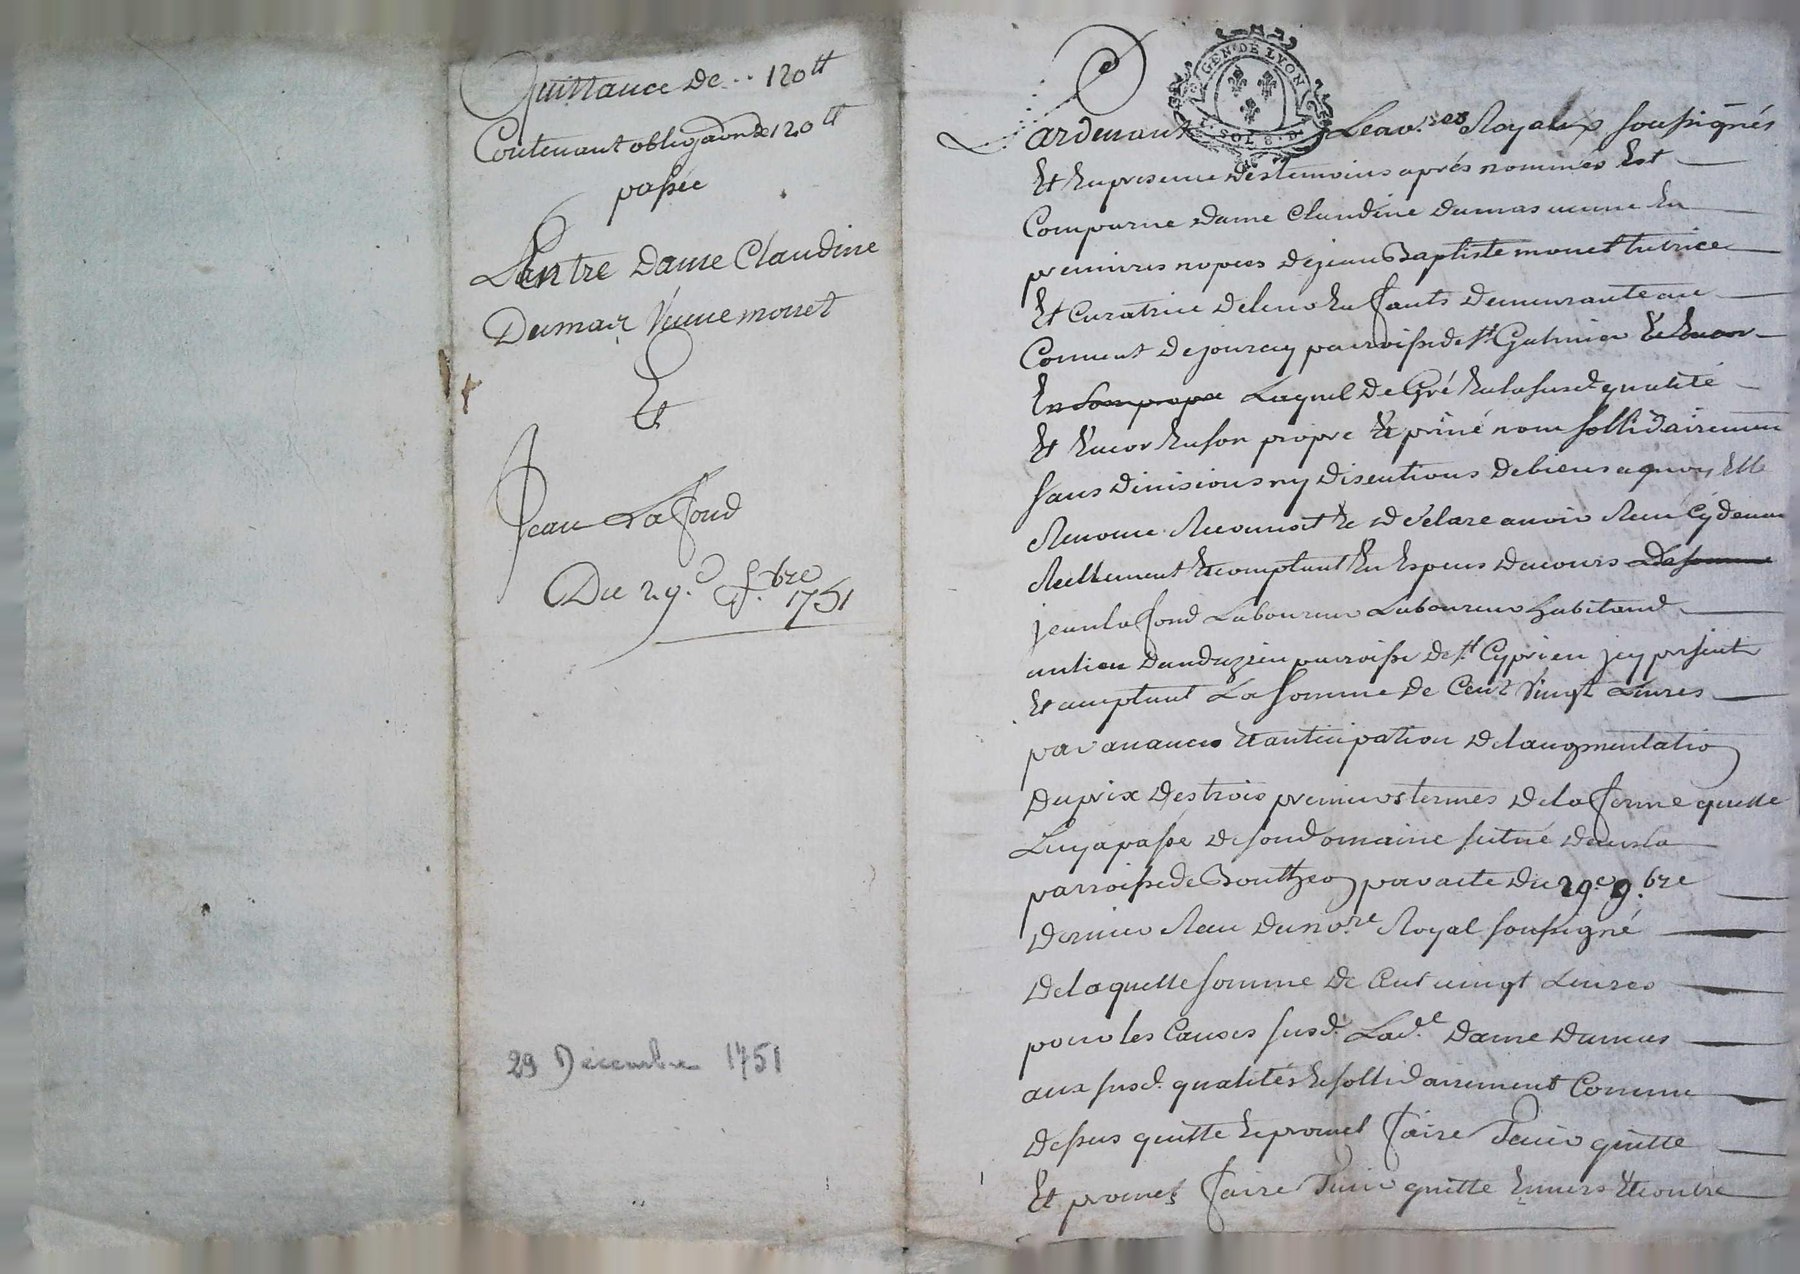 Quittance de .. 120tt
Contenant obligaõn de 120tt
passée
Entre Dame Claudine
Dumas Veuve monet
Et
Jean La fond
Du 29.e Xbre
1751
29 Décembre 1751
GEN DE LYON
SOLS
Pardevant Les no.res Royaux soussignés
Et En presence des temoins après nommés Est
Comparue dame Claudine dumas veuve En
premieres nopces de jean Baptiste monet tutrice
Et Curatrice de leurs Enfants demeurante au
Couvent de jourcey parroisse de St Galmier
Laquel de Gré En la susd. qualité
Et Encor En son propre Et privé nom sollidairement
sans divisions ny discutions de biens a quoy Elle
Renonce Reconnoit Et déclare avoir Reçu Cy devant
Reellement Et comptant En Especes de cours De somme
jean la fond Laboureur Laboureur habitand
au lieu dandrezieu parroisse de St Cyprien jcy present
Et acceptant La somme de Cent Vingt Livres
par avances Et anticipation de laugmentation
du prix des trois premiers termes de la ferme quelle
Luy a passé de son domaine scitué dans la
parroisse de Bouthzeon par acte du 29.e 9.bre
dernier Reçu du no.re Royal soussigné
de laquelle somme de Cent vingt Livres
pour les Causes susd. Lad.e Dame Dumas
aux susd. qualités Et sollidairement Comme
dessus quitte Et promet faire Tenir quitte
Et promet faire Tenir quitte Envers Et contre